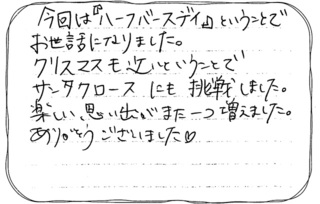 今回は『ハーフバースディ』ということで
お世話になりました。
クリスマスも近いということで
サンタクロースにも挑戦しました。
楽しい思い出がまた一つ増えました。
ありがとうございました♡